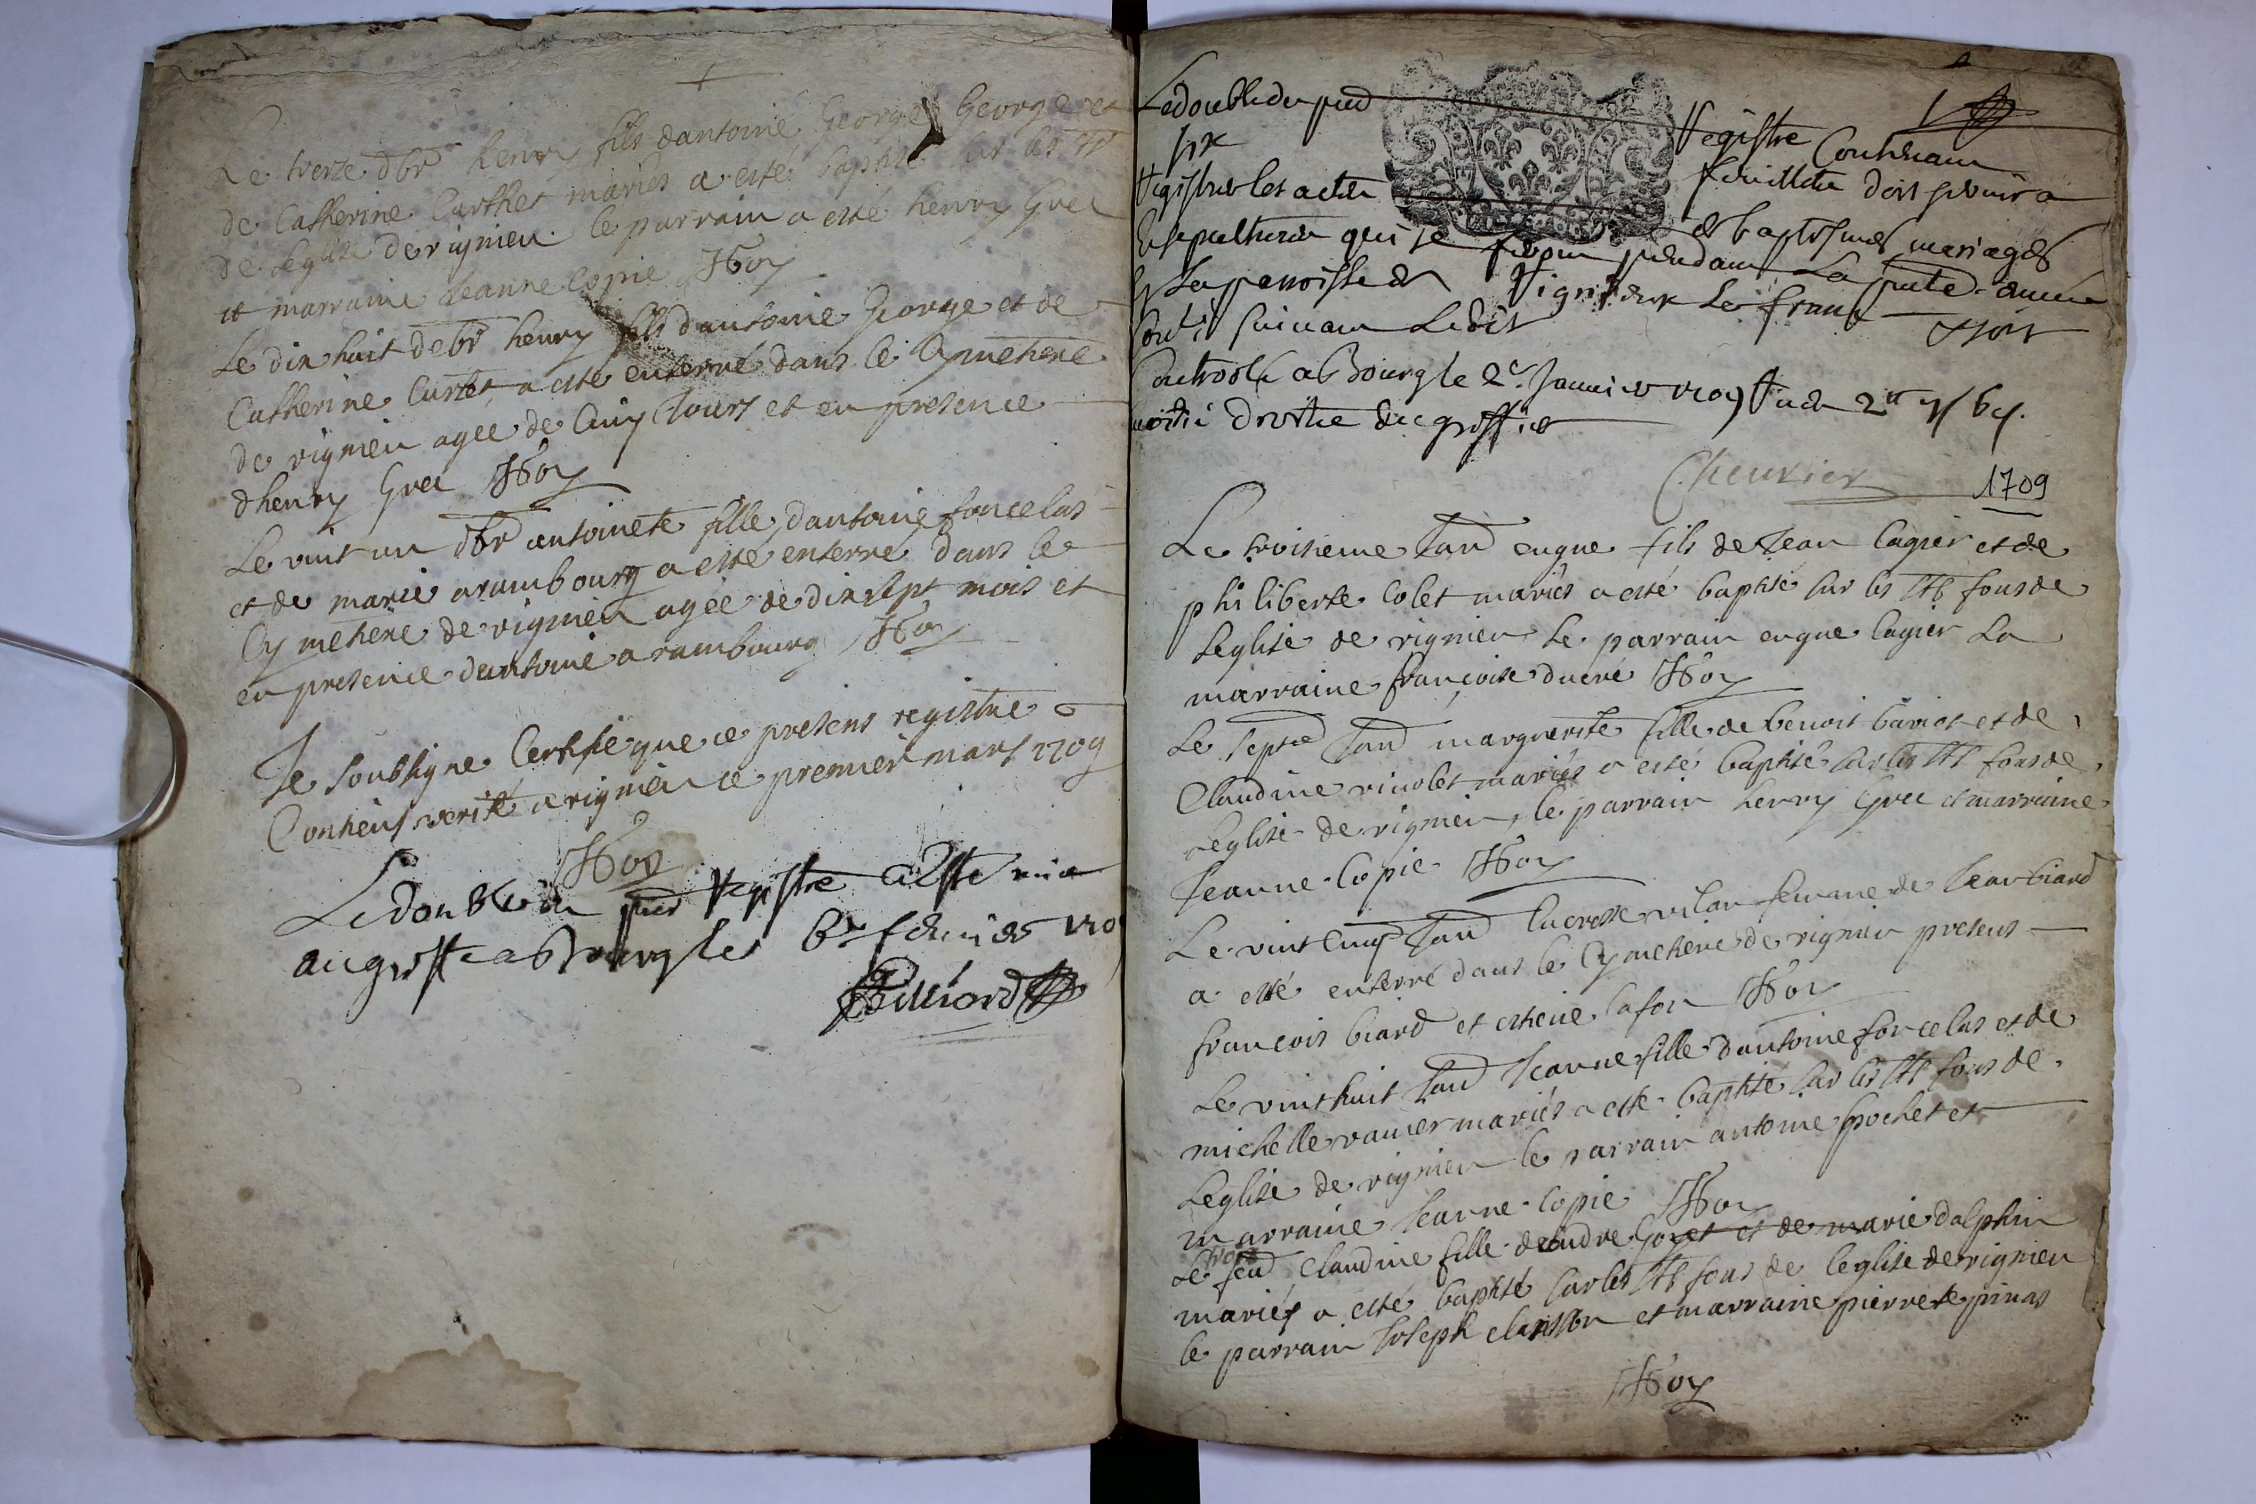 Le treze dbr henry fils dantoine George George et
de Catherine Curthet mariés a esté baptisé sur les
de leglise de rignieu le parrain a esté henry Grec
et marraine Jeanne Copie Roy
Le dix huit debr henry fils dantoine George et de
Catherine Curtet a esté enterré dans le Cymetiere
de rignieu agée de Cinq Jours et en presence
dhenry Grec Roy
Le vint un dbr antoinete fille dantoine foncelas
et de marie arambourg a esté enterré dans le
Cymetiere de rignieu agée de dix sept mois et
en presence dantoine arambourg Roy
Je soubsigne Certifie que ce present registre
Contient verité a rignieu ce premier mars 1709
Roy
Le double du registre a esté mis
au greffe a Bourg le fevrier 170
Billiord
Le double du
six
registre Contenant
feuillets doit servir a
registrer les actes
de baptesmes mariages
sepultures qui se feront pendant la année
la parroisse de Rignieux le franc
suivant Ledit
Controolé a Bourg le 2e Janvier 1709
moitié droitz du greffier
Cheurier
1709
Le troisieme Janv eugne fils de Jean Cagier et de
philiberte Colet mariés a esté baptisé sur les fons de
Leglise de rignieu le parrain eugne Cagier La
marraine françoise ducré Roy
Le sept Janv marguerite fille de benoit bariot et de
Claudine violet mariés a esté baptisé sur les fons de
Leglise de rignieu, le parrain henry Grec et marraine
Jeanne Copie Roy
Le vint Cinq Janv Lucresse vilan femme de Jean biard
a esté enterré dans le Cymetiere de rignieu presens
françois biard et Lafon Roy
Le vint huit Janv Jeanne fille dantoine foncelas et de
michelle vanier mariés a esté baptisé sur les fons de
Leglise de rignieu le parrain antoine pochet et
marraine Jeanne Copie Roy
trois
Le fev Claudine fille deandre Goyet et de marie dalphin
mariés a esté baptisé sur les fons de leglise de rignieu
le parrain Joseph et marraine pierrete pinas
Roy